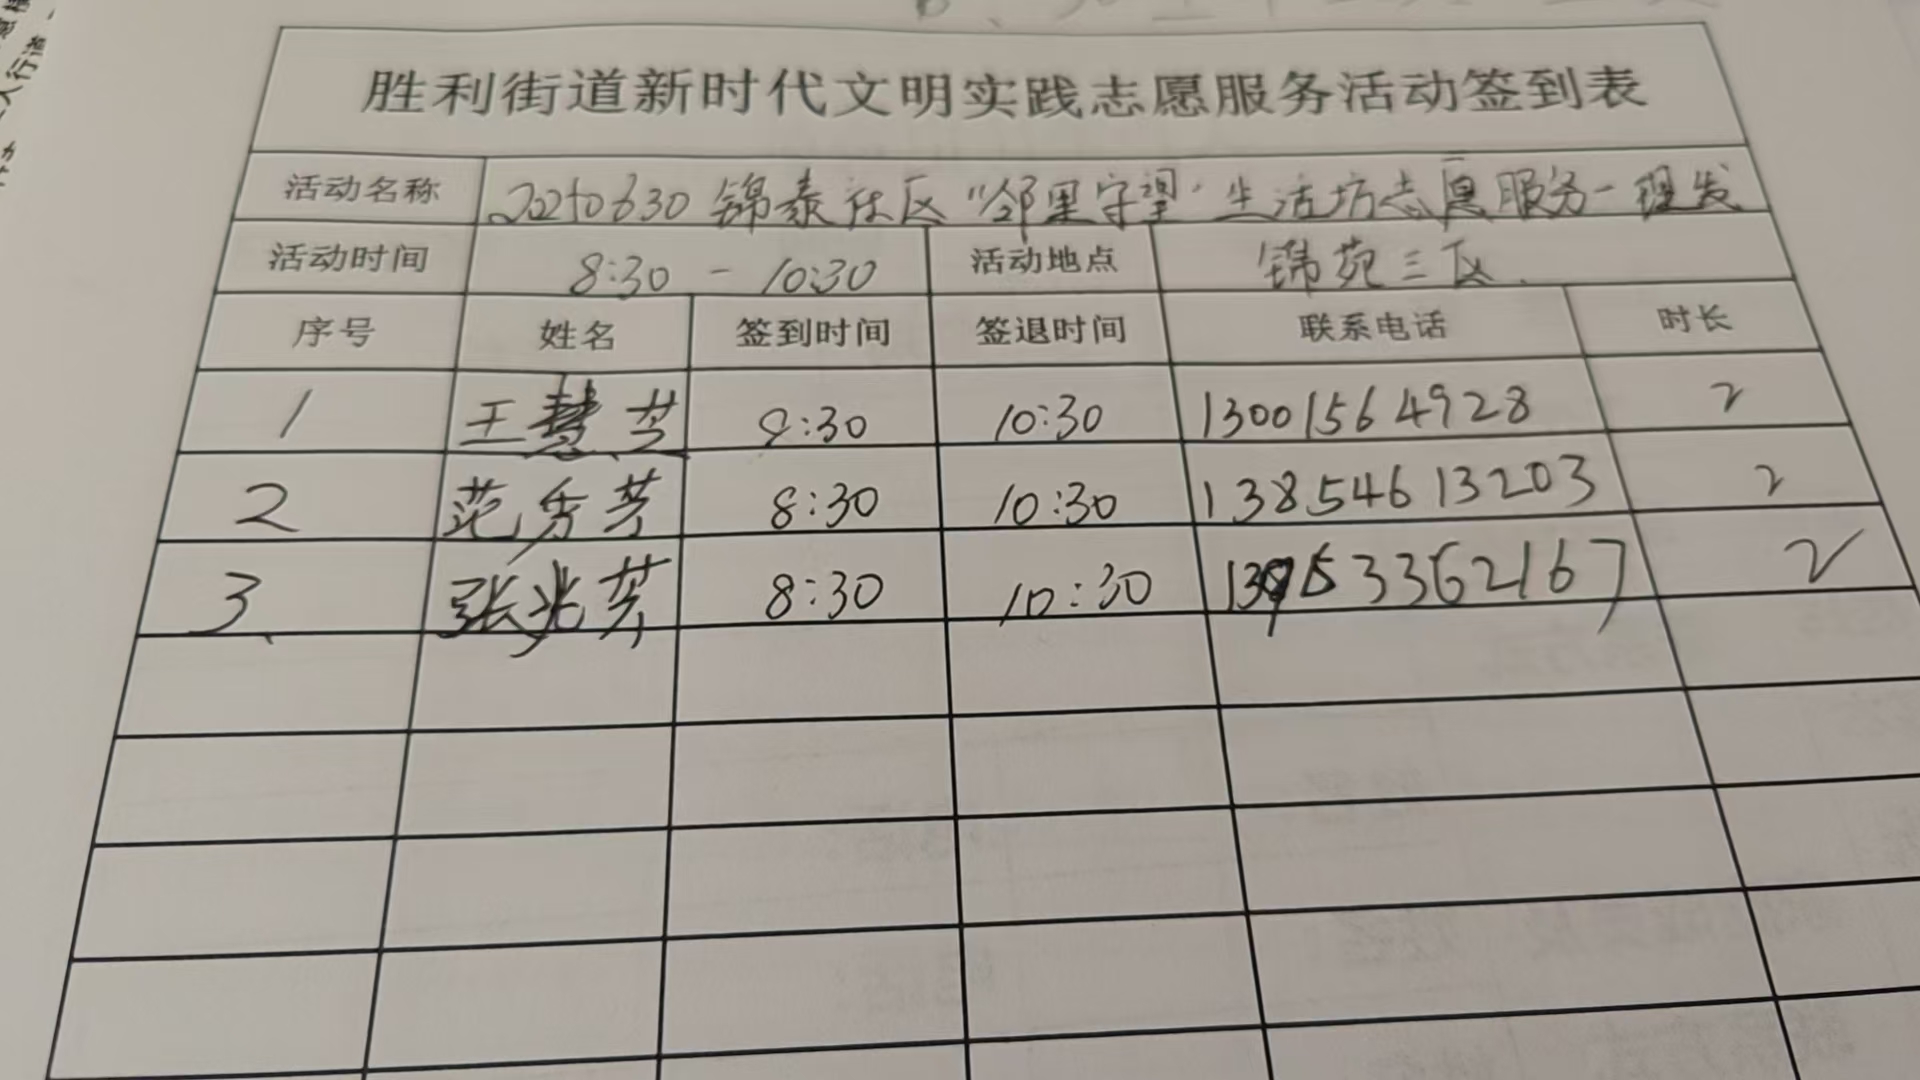 胜利街道新时代文明实践志愿服务活动签到表
活动名称 20210630 锦泰社区“邻里守望”生活坊志愿服务-理发
活动时间 8:30 - 10:30 活动地点 锦苑三区.
序号 姓名 签到时间 签退时间 联系电话 时长
1 王慧芝 8:30 10:30 13001564928 2
2 范秀芳 8:30 10:30 13854613203 2
3、 张兆芬 8:30 10:30 2